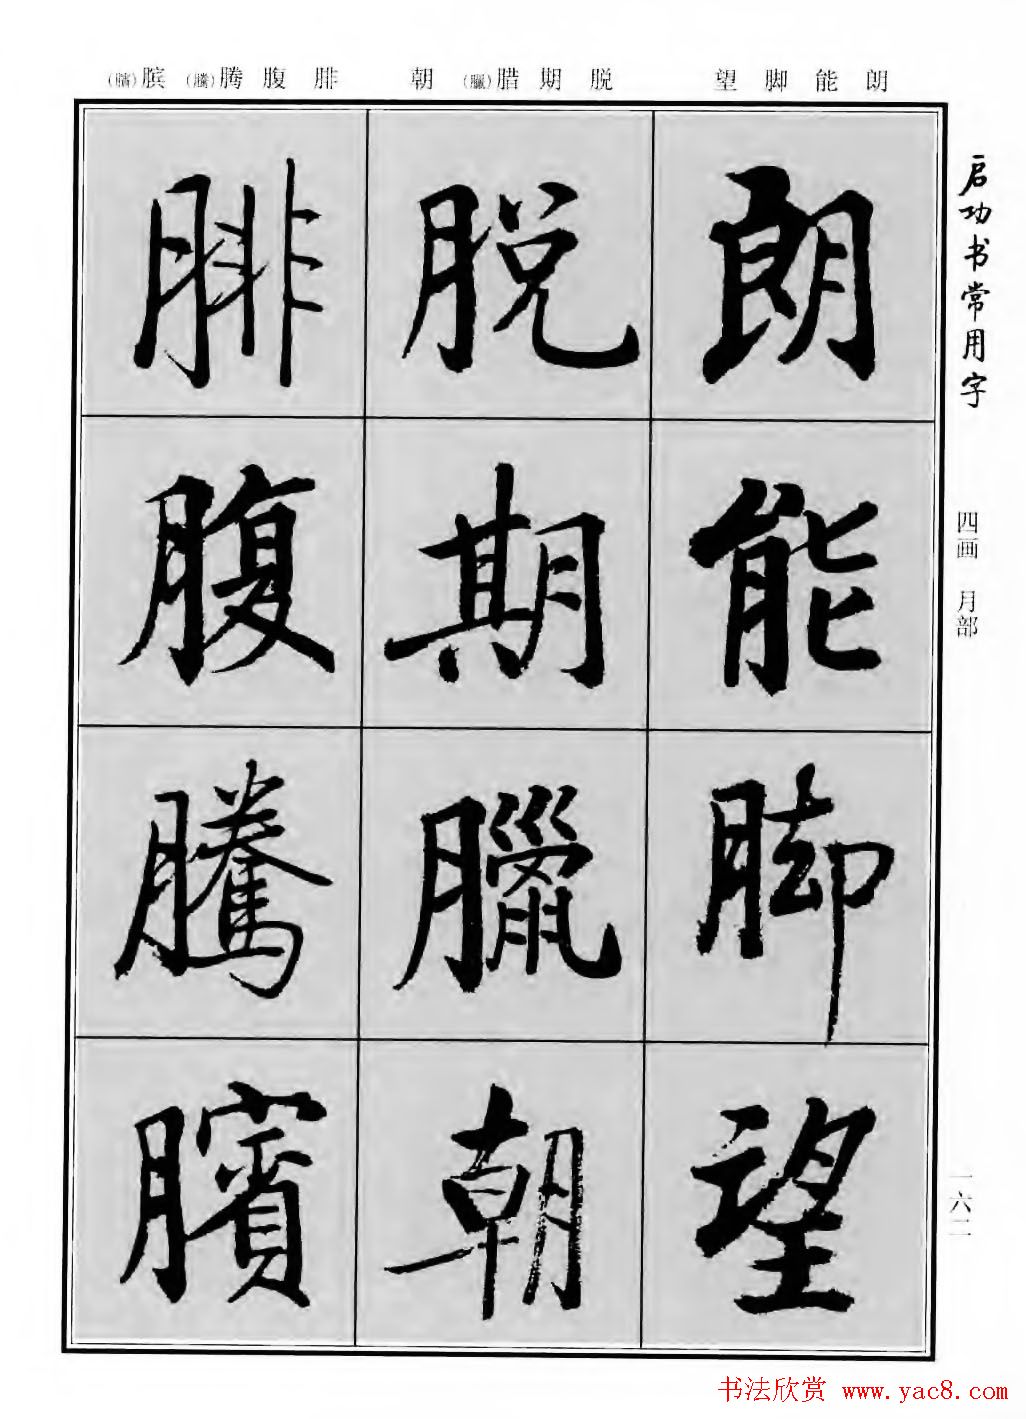 朗能脚望
脱期腊(臘)朝
腓腹腾(騰)膑(臏)
启功书常用字
四画 月部
一六二
朗
能
脚
望
脱
期
臘
朝
腓
腹
騰
臏
书法欣赏 www.yac8.com